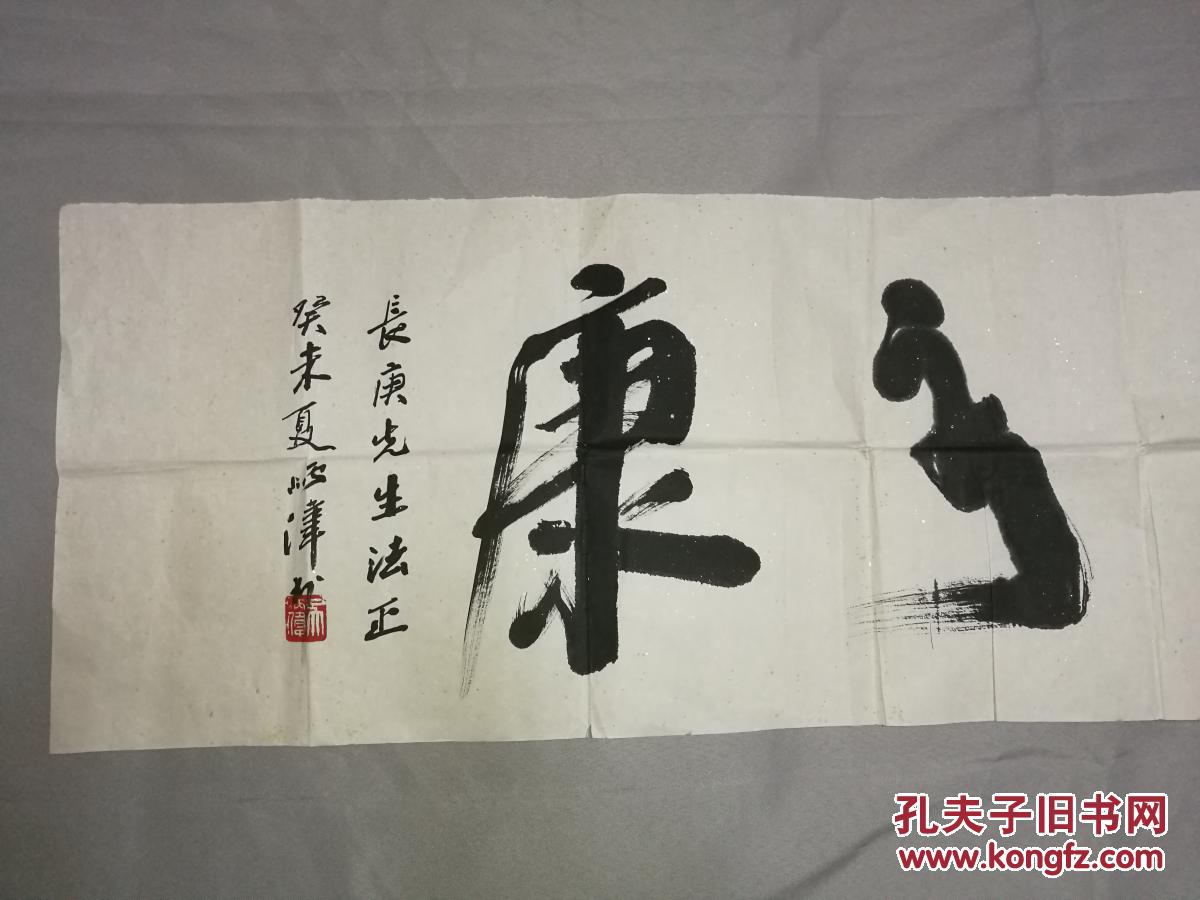 康
長庚先生法正
癸未夏炳偉书
孔夫子旧书网
www.kongfz.com